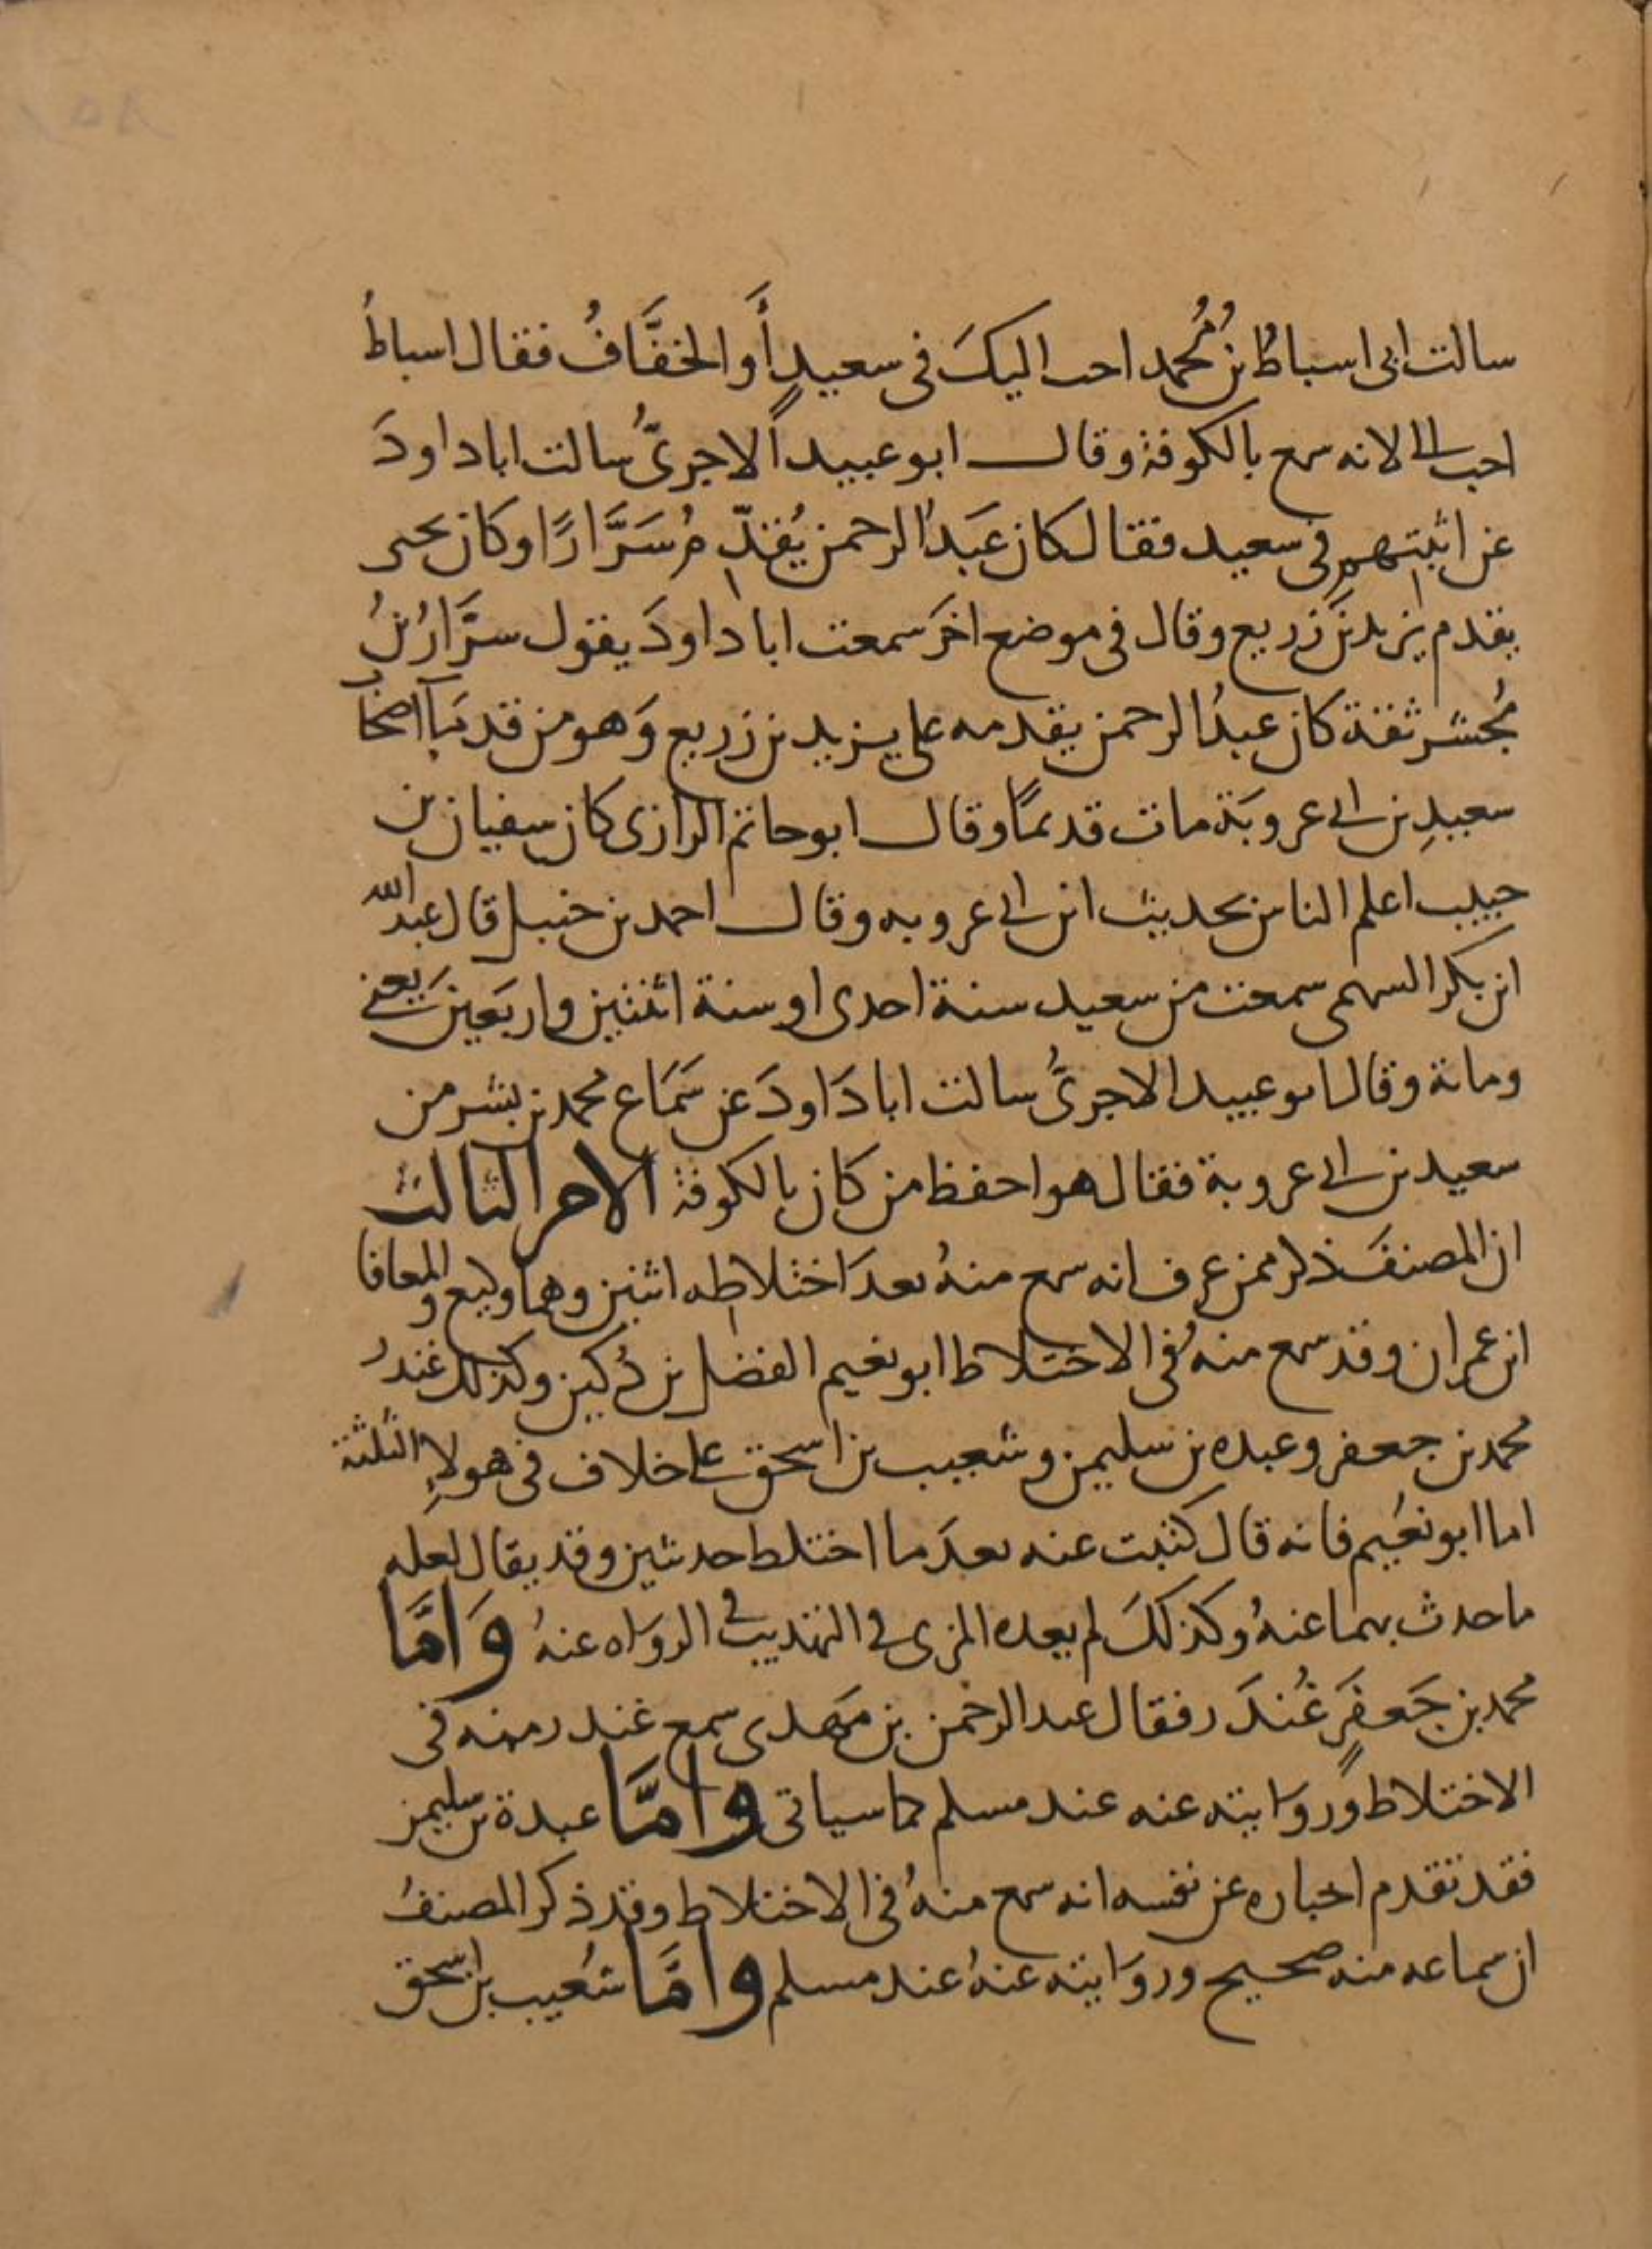 سالت ابى اسباطُ بنُ مُحمد احب اليكَ فى سعيدٍ أَو الخفَّافُ فقال اسباطُ
احب الى لانه سمع بالكوفة وقال ابو عبيد الاجرىّ سالت ابا داودَ
عن اثبتهم فى سعيد فقال كان عَبدُ الرحمن يُقدّم سَرَّارًا وكان يحيى
يقدم يزيد بن زريع وقال فى موضع اخرَ سمعت ابا داودَ يقول سرَّارُ بنُ
مُجشر ثقة كان عبدُ الرحمن يقدمه على يزيد بن زريع وَهو من قدمآ اصحاب
سعيدِ بن ابى عروبَة مات قديمًا وقال ابو حاتم الرازى كان سفيان بن
حبيب اعلم الناس بحديث ابن ابى عروبه وقال احمد بن حنبل قال عبد الله
ابن بكر السهمى سمعت من سعيد سنة احدى او سنة اثنتين واربَعين يَعنى
ومائة وقال ابو عبيد الاجرىُّ سالت ابا دَاودَ عن سَمَاع محمد بن بشر من
سعيد بن ابى عروبة فقال هو احفظ من كان بالكوفة الامر الثالث
ان المصنفَ ذكر ممن عرف انه سمع منهُ بعدَ اختلاطه اثنين وهما وكيع والمعافا
ابن عمران وقد سمع منهُ فى الاختلاط ابو نعيم الفضل بن دُكين وكذلك غندرُ
محمد بن جعفر وعبده بن سليمن وشعيب بن اسحق على خلاف فى هولاءِ الثلثة
اما ابو نعُيم فانه قال كتبت عنه بعدَ ما اختلط حديثين وقد يقال لعله
ما حدث بهما عنهُ وكذلكَ لم يعده المزى فى التهذيب فى الروَاه عنهُ وَامَّا
محمد بن جَعفَرٍ غُندَر فقال عبد الرحمن بن مَهدى سمع غندر منه فى
الاختلاط وَروَايته عنه عند مسلم كما سياتى وامَّا عبدة بن سليمن
فقد تقدم اخباره عن نفسه انه سمع منهُ فى الاختلاط وقد ذكر المصنفُ
ان سماعه منه صحيح وروَايته عنهُ عند مسلم وامَّا شُعيب بن اسحق